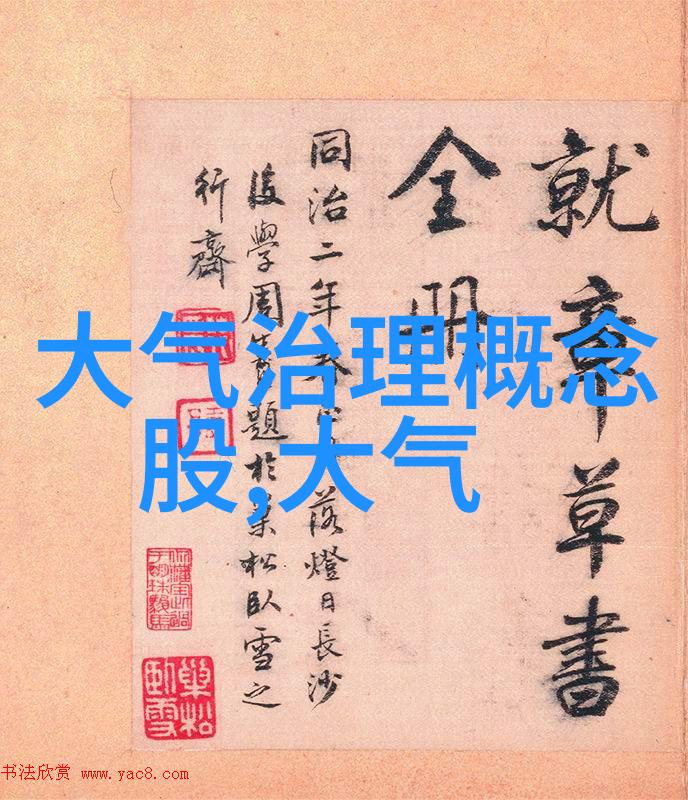 大气治理概念
股,大气
就章草書
全冊
同治二年 落燈日長沙
後學周 題於巢松臥雪之
行齋
巢松
臥雪
书法欣赏 www.yac8.com